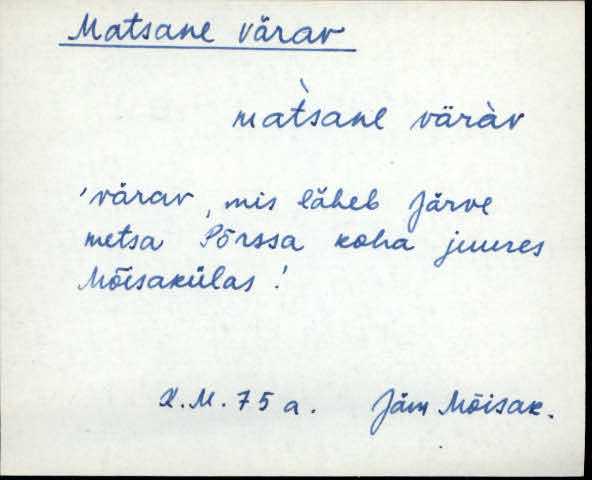 Matsane värav
màtsane väràv
'värav, mis läheb Järve
metsa Põrssa koha juures
Mõisakülas!
X.M. 75 a. Jäm Mõisak.